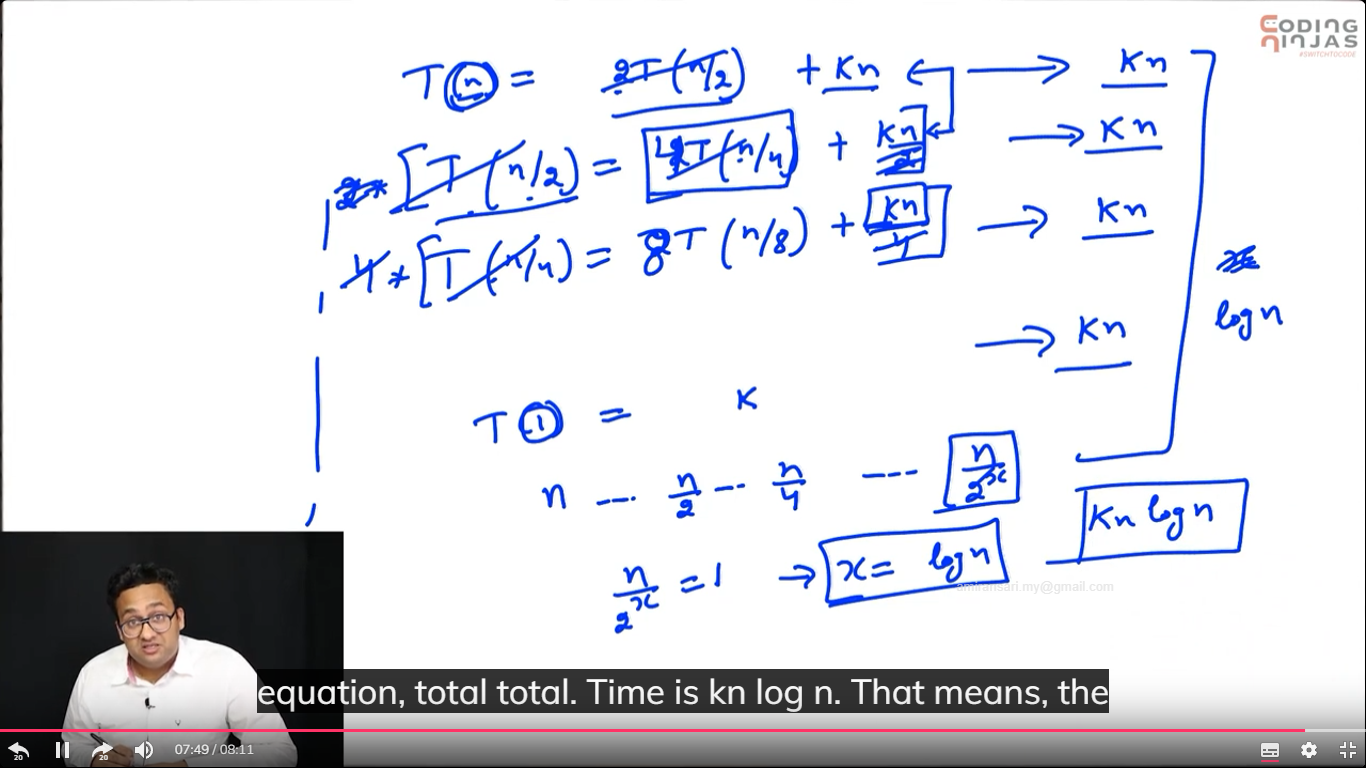 CODING
NINJAS
#SWITCHTOCODE
T(n) = 2T(n/2) + Kn → Kn
2* [T(n/2) = 4T(n/4) + Kn/2 → Kn
4* [T(n/4) = 8T(n/8) + Kn/4 → Kn
log n
→ Kn
T(1) = K
n --- n/2 -- n/4 --- n/2^x
Kn log n
n/2^x = 1 → x = log n
amiransari.my@gmail.com
equation, total total. Time is kn log n. That means, the
20 20 07:49 / 08:11